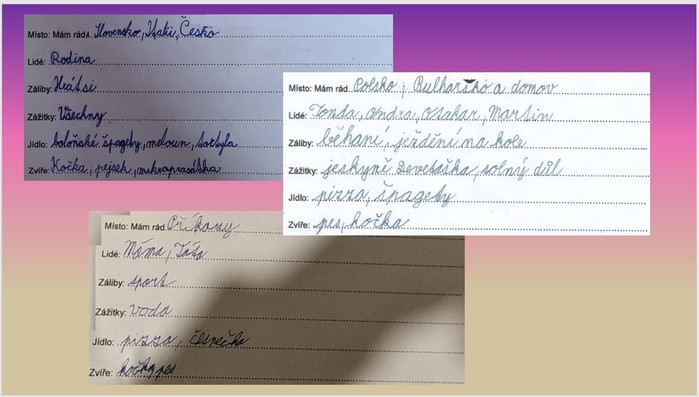 Místo: Mám rád. Slovensko, Itálii, Česko
Lidé: Rodina
Záliby: Hrát si
Zážitky: Všechny
Jídlo: boloňské špagety, meloun, tortyla
Zvíře: Kočka, pejsek, mikroprasátka
Místo: Mám rád Polsko, Bulharsko a domov
Lidé: Tonda, Ondra, Otakar, Martin
Záliby: běhaní, ježdění na kole
Zážitky: jeskyně Devetaška, solný důl
Jídlo: pizza, špagety
Zvíře: pes, kočka
Místo: Mám rad.
Lidé: Máma, Táta
Záliby: sport
Zážitky: voda
Jídlo: pizza,
Zvíře: kočka, pes